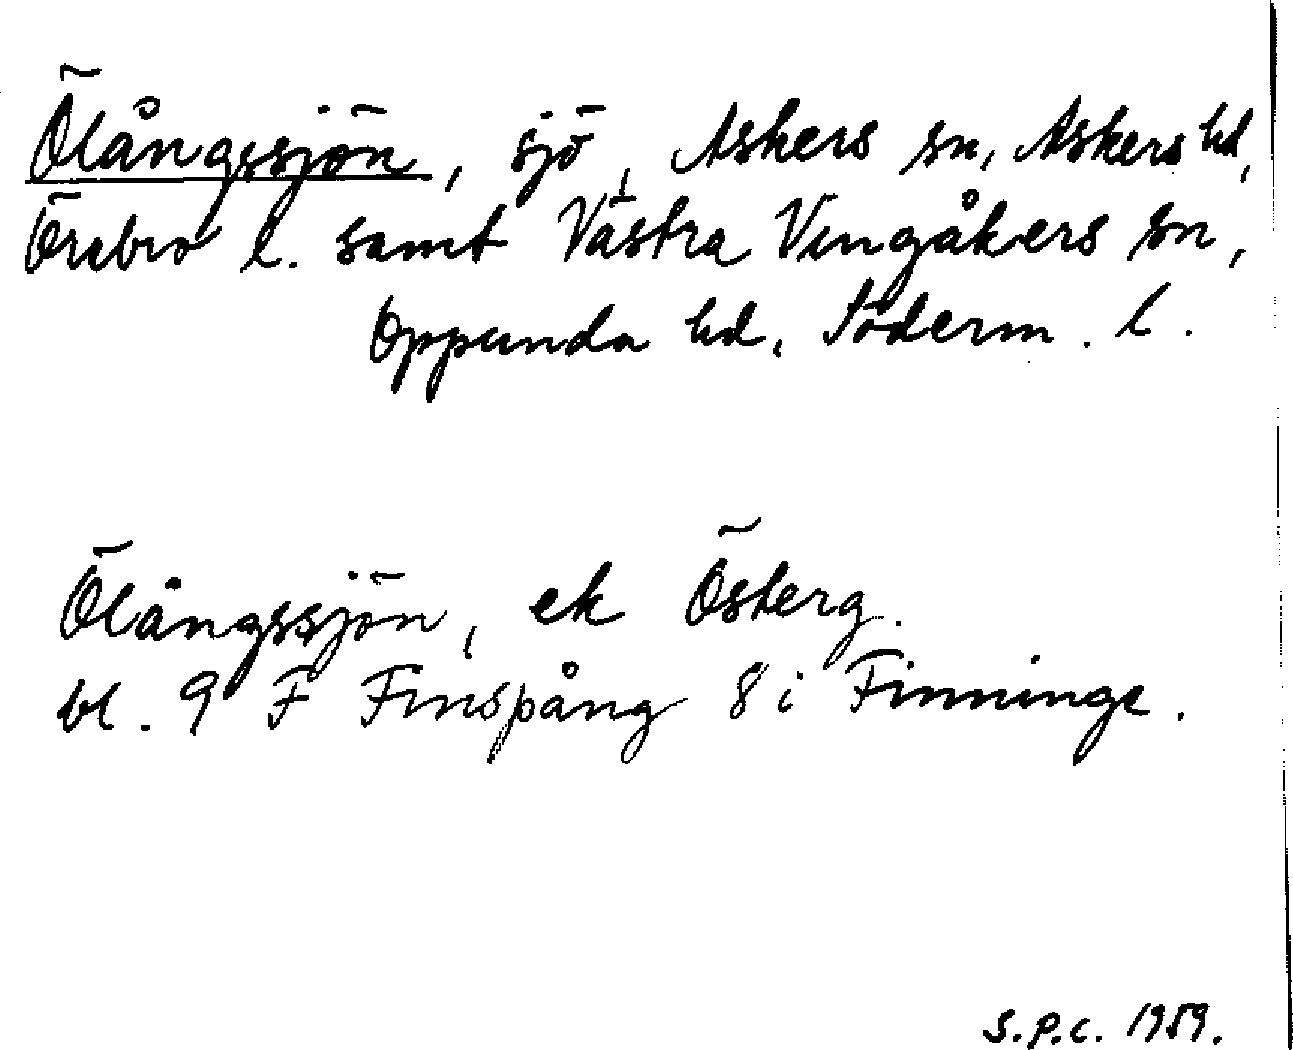 Ölångssjön, sjö, Askers sn, Askers hd,
Örebro l. samt Västra Vingåkers sn,
Oppunda hd, Söderm. l.
Ölångssjön, ek Österg.
bl. 9 F Finspång 8 i Finninge.
S.P.C. 1959.